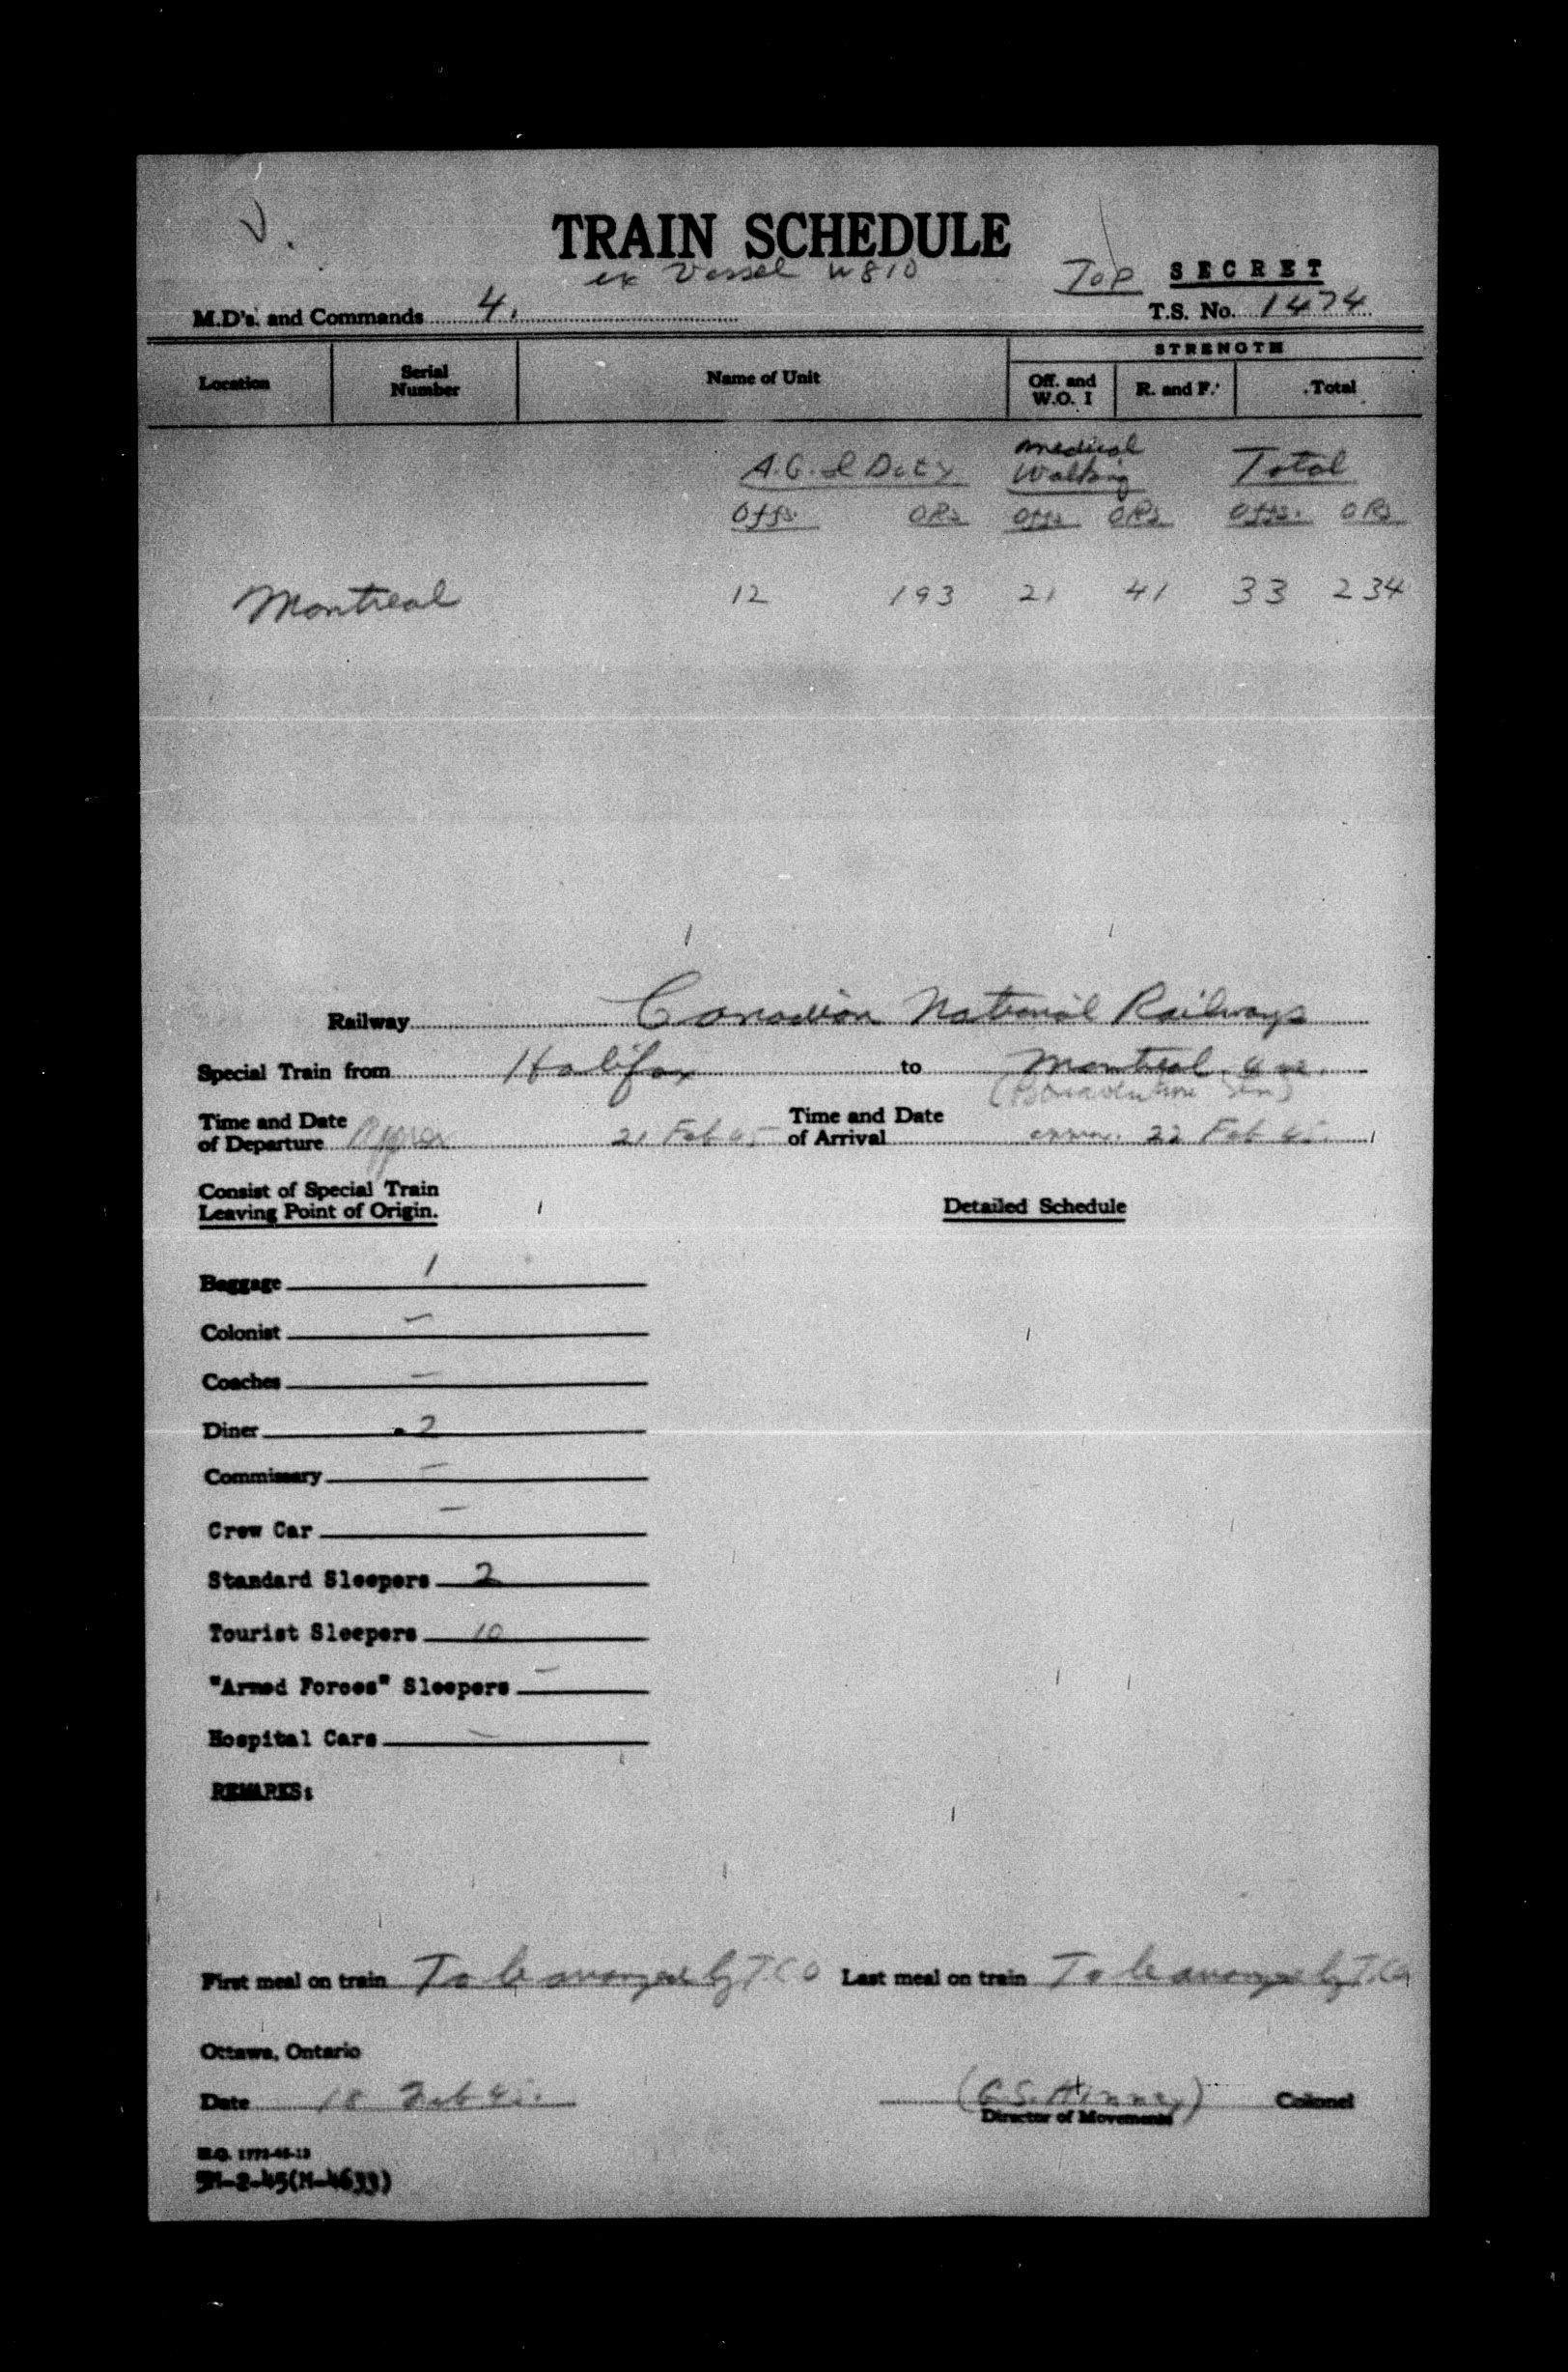 TRAIN SCHEDULE
ex Vessel W810
Top SECRET
M.D's. and Commands 4.
T.S. No. 1474
STRENGTH
Location Serial Number Name of Unit Off. and W.O. I R. and F. Total
A.G. & Duty Medical Walking Total
Offs. ORs Offs ORs Offs. ORs
Montreal 12 193 21 41 33 234
Railway Canadian National Railways
Special Train from Halifax to Montreal, Que.
(Bonaventure Stn)
Time and Date of Departure Approx 21 Feb 45 Time and Date of Arrival 22 Feb 45.
Consist of Special Train
Leaving Point of Origin. Detailed Schedule
Baggage 1
Colonist –
Coaches –
Diner 2
Commissary –
Crew Car –
Standard Sleepers 2
Tourist Sleepers 10
"Armed Forces" Sleepers –
Hospital Cars –
REMARKS:
First meal on train To be arranged by T.C.O Last meal on train To be arranged by T.C.O
Ottawa, Ontario
Date 18 Feb 45. Colonel
Director of Movements
H.Q. 1772-45-13
5M-2-45(M-4633)